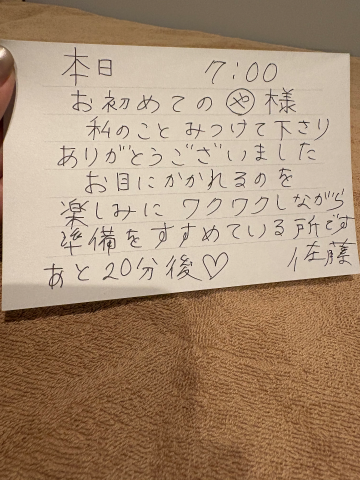 本日 7:00
お初めての㋳様
私のことみつけて下さり
ありがとうございました
お目にかかれるのを
楽しみに ワクワクしながら
準備をすすめている所です
あと20分後♡ 佐藤